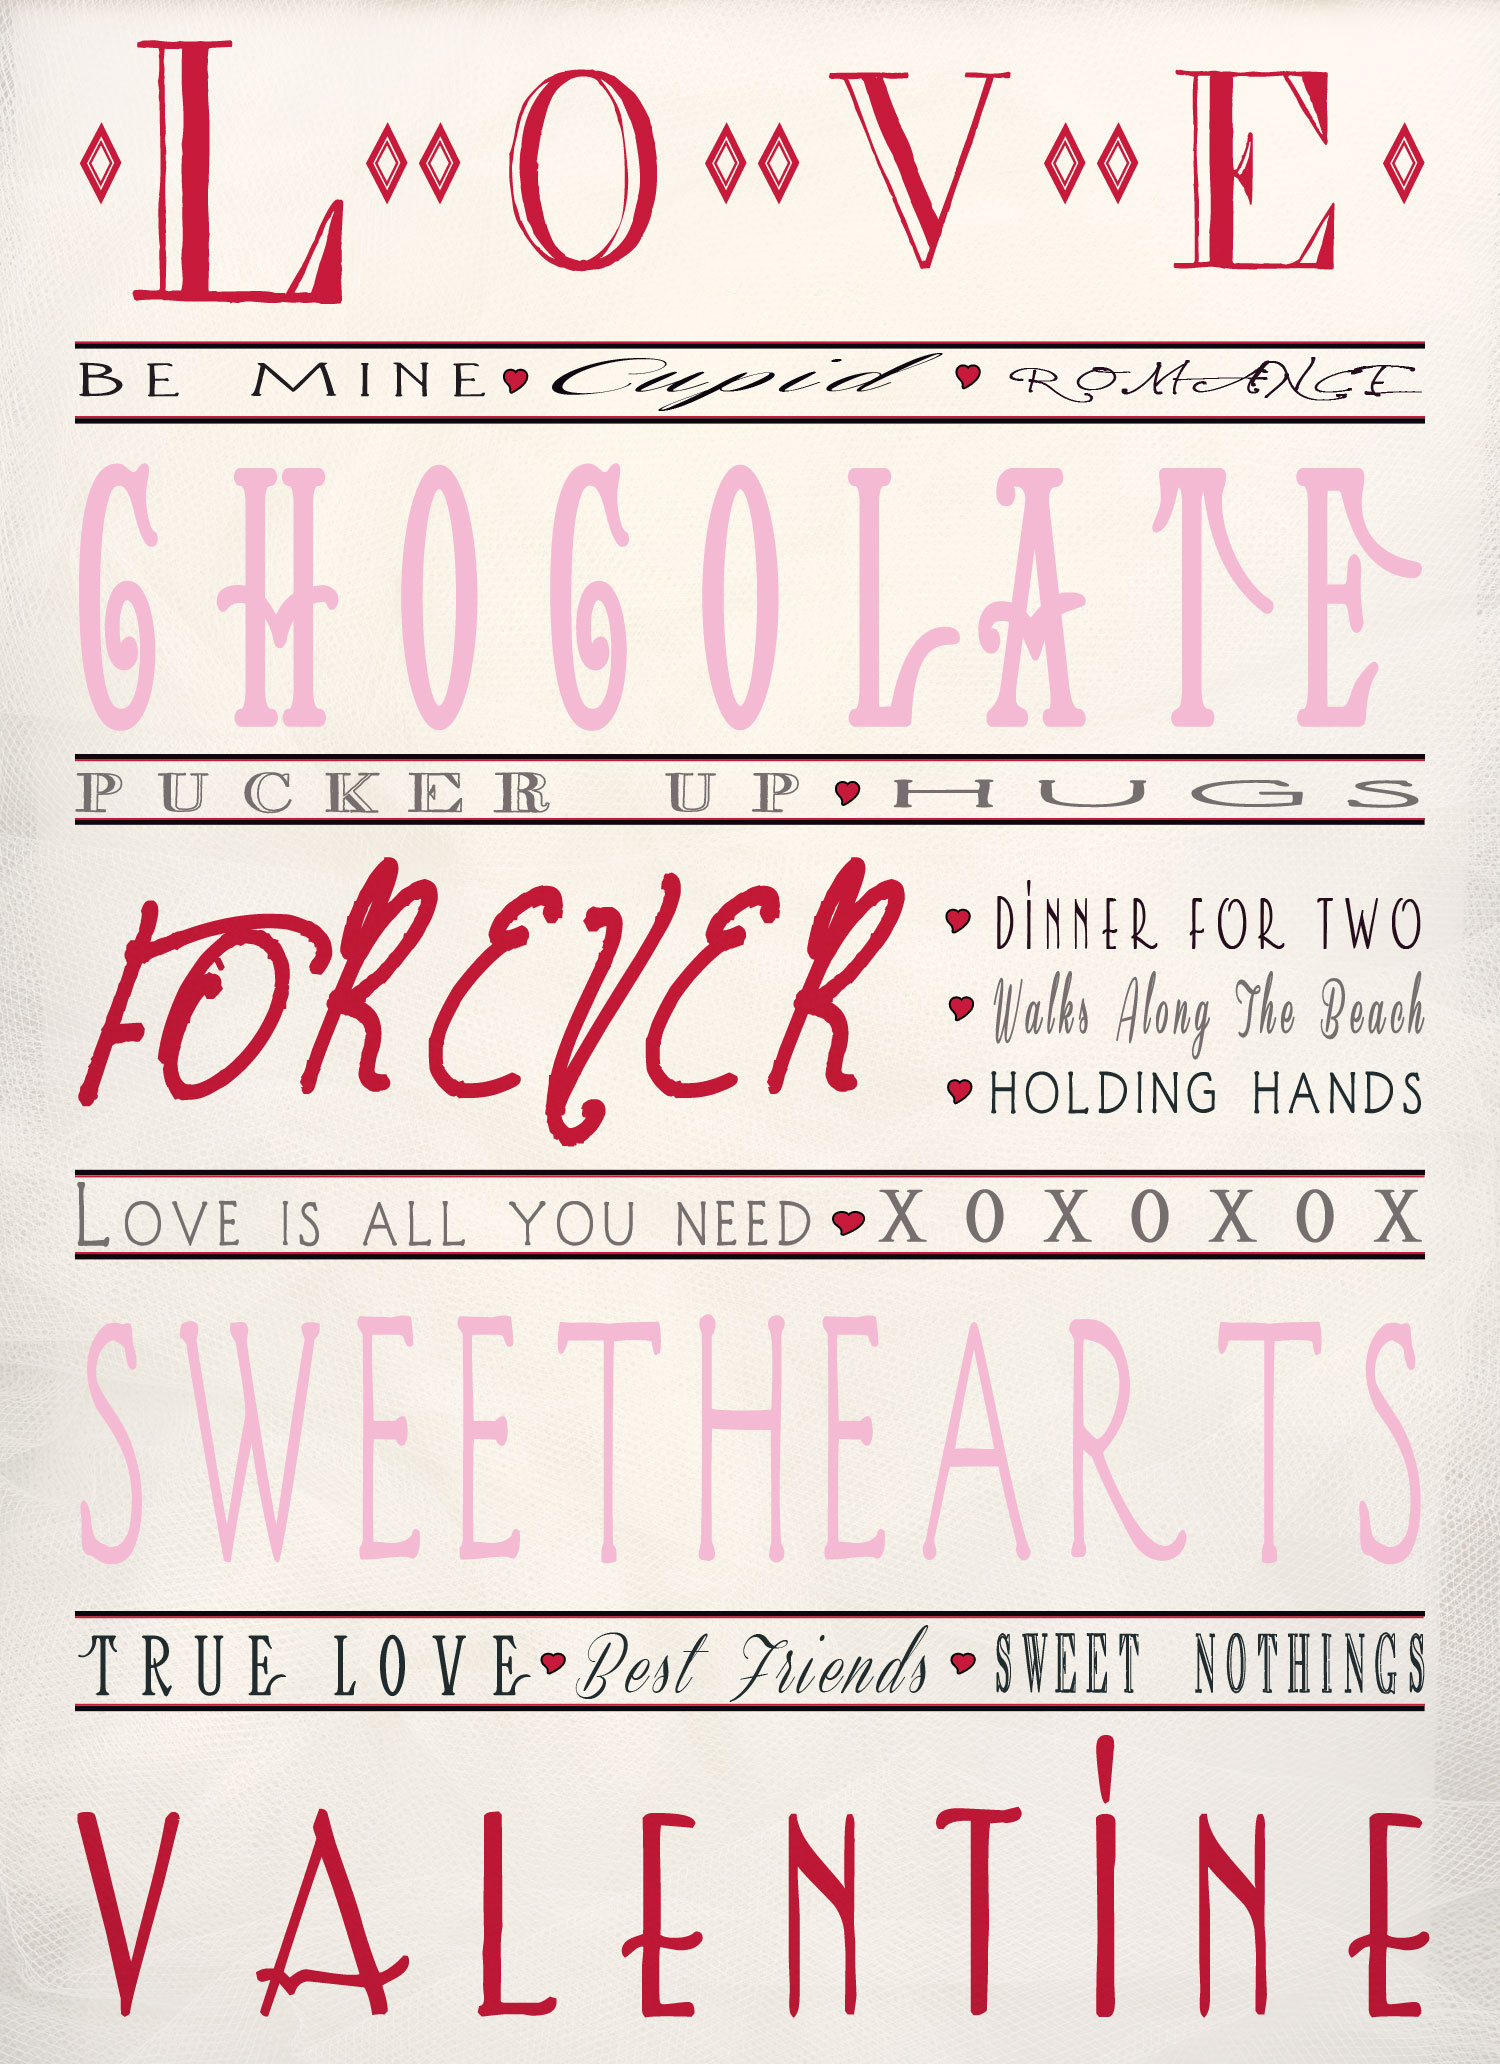 LOVE
BE MINE Cupid ROMANCE
CHOCOLATE
PUCKER UP HUGS
FOREVER
DINNER FOR TWO
Walks Along The Beach
HOLDING HANDS
LOVE IS ALL YOU NEED XOXOXOX
SWEETHEARTS
TRUE LOVE Best Friends SWEET NOTHINGS
VALENTINE